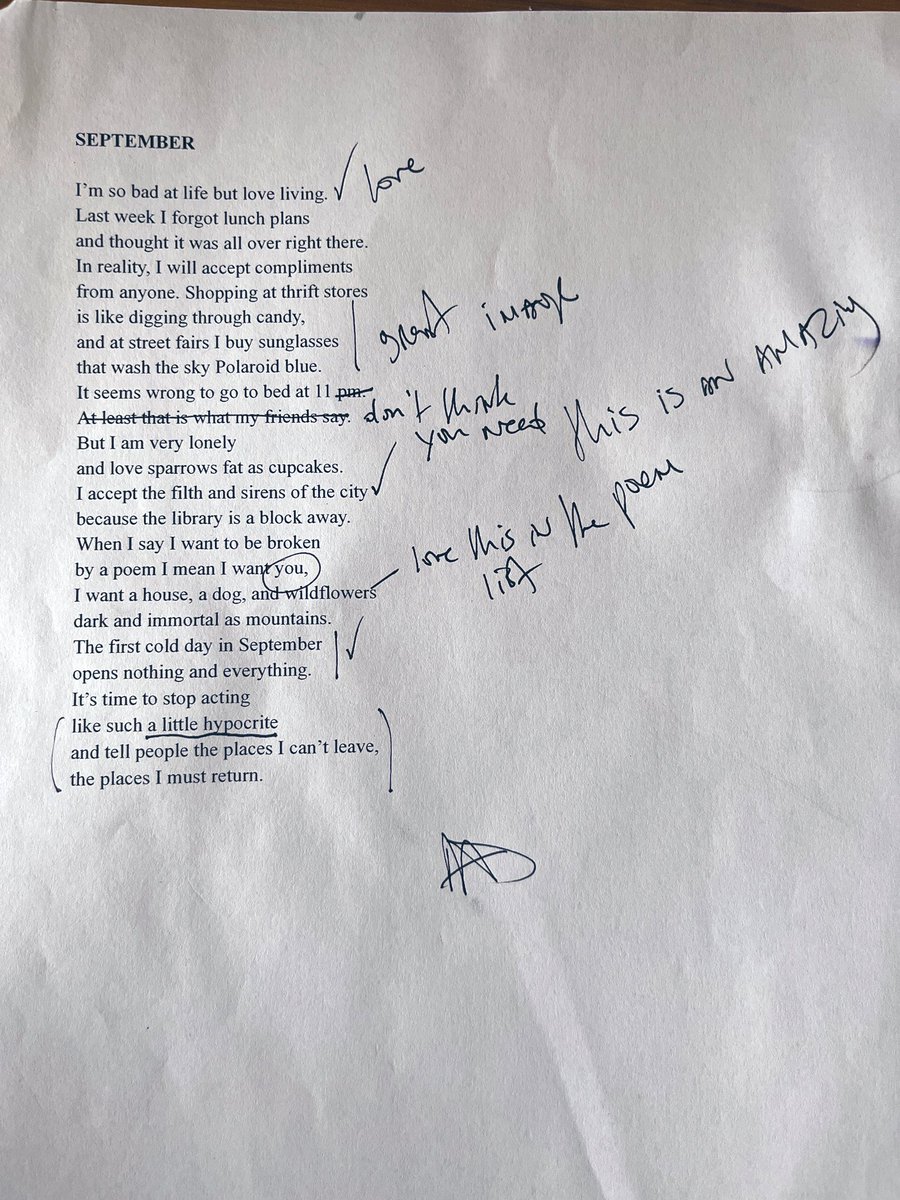 SEPTEMBER
I'm so bad at life but love living. love
Last week I forgot lunch plans
and thought it was all over right there.
In reality, I will accept compliments
from anyone. Shopping at thrift stores
is like digging through candy,
great image
and at street fairs I buy sunglasses
that wash the sky Polaroid blue.
It seems wrong to go to bed at 11 pm.
At least that is what my friends say. don't think
you need
This is an AMAZING
But I am very lonely
and love sparrows fat as cupcakes.
I accept the filth and sirens of the city
because the library is a block away.
When I say I want to be broken
by a poem I mean I want you,
love this in the
list
poem
I want a house, a dog, and wildflowers
dark and immortal as mountains.
The first cold day in September
opens nothing and everything.
It's time to stop acting
like such a little hypocrite
and tell people the places I can't leave,
the places I must return.